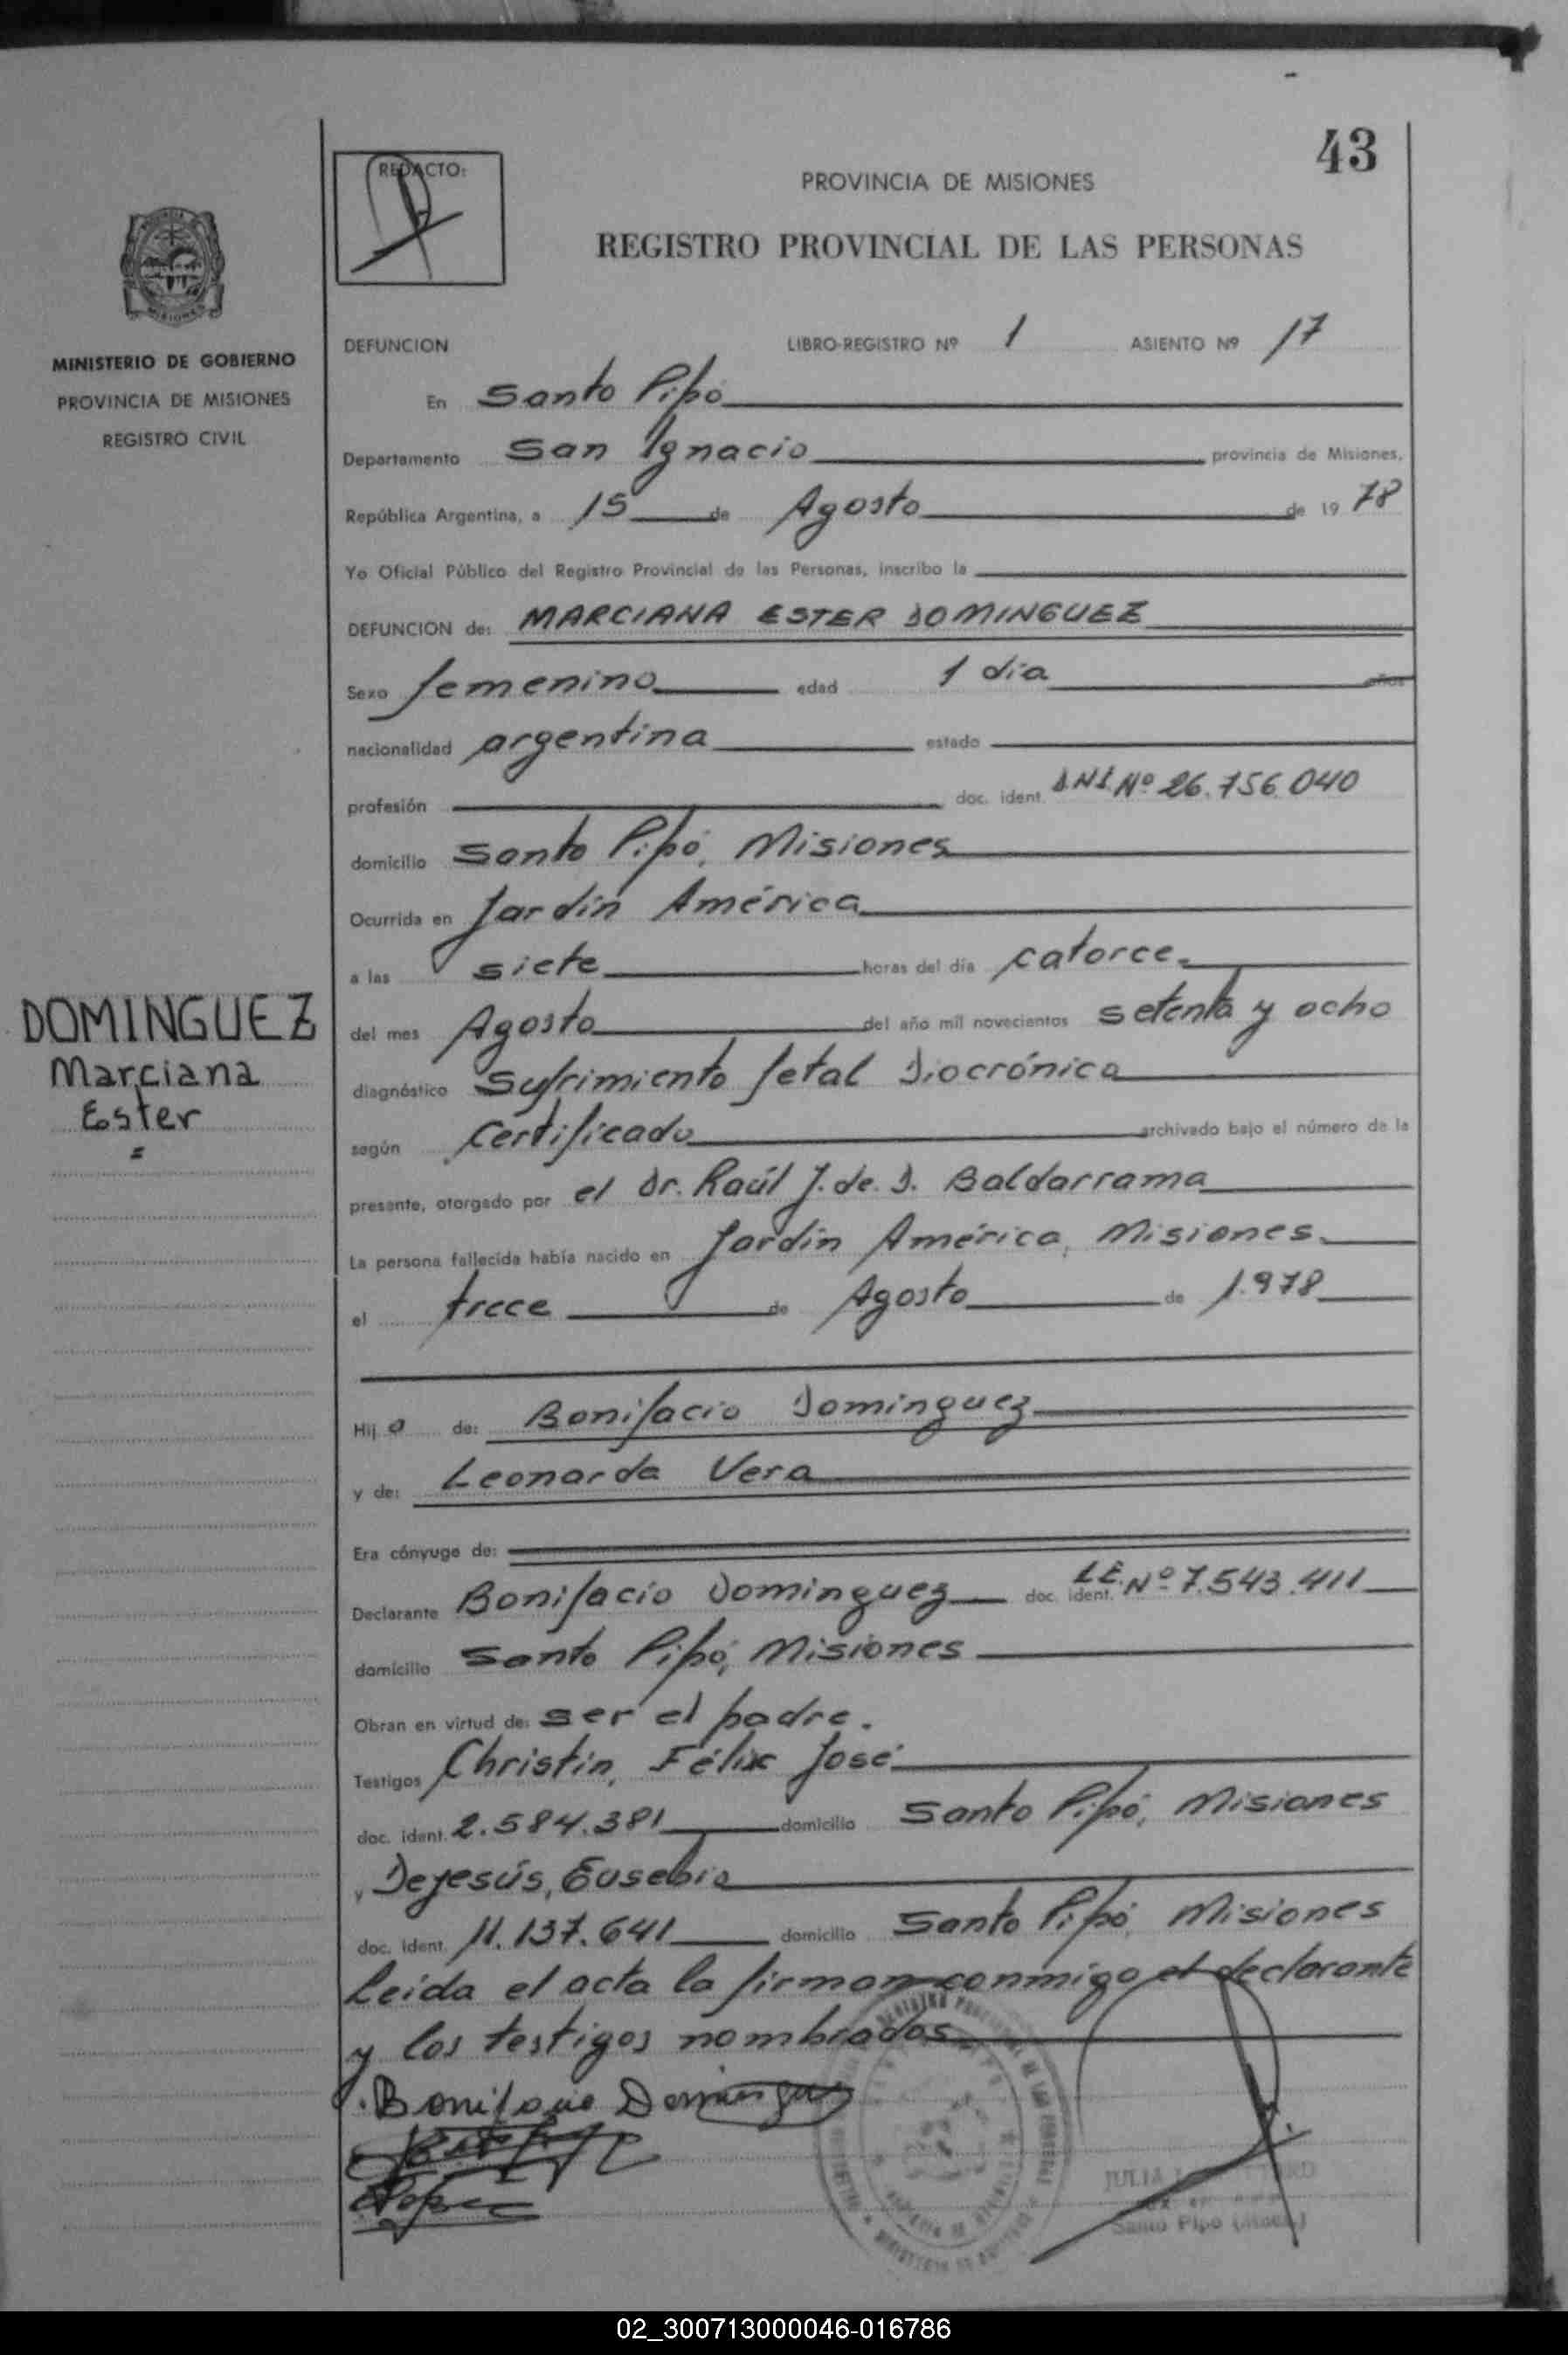 43
REDACTO:
PROVINCIA DE MISIONES
REGISTRO PROVINCIAL DE LAS PERSONAS
MINISTERIO DE GOBIERNO
PROVINCIA DE MISIONES
REGISTRO CIVIL
DEFUNCION LIBRO-REGISTRO Nº 1 ASIENTO Nº 17
En Santo Pipó
Departamento San Ignacio provincia de Misiones,
República Argentina, a 15 de Agosto de 1978
Yo Oficial Público del Registro Provincial de las Personas, inscribo la
DEFUNCION de: MARCIANA ESTER DOMINGUEZ
Sexo femenino edad 1 día años
nacionalidad argentina estado
profesión doc. ident. D.N.I. Nº 26.756.040
domicilio Santo Pipó, Misiones
Ocurrida en Jardín América
a las siete horas del día catorce
del mes Agosto del año mil novecientos setenta y ocho
diagnóstico Sufrimiento fetal Diocrónica
según Certificado archivado bajo el número de la
presente, otorgado por el Dr. Raúl J. de. D. Baldarrama
La persona fallecida había nacido en Jardín América, Misiones
el trece de Agosto de 1.978
DOMINGUEZ
Marciana
Ester
=
Hija de: Bonifacio Dominguez
y de: Leonarda Vera
Era cónyuge de:
Declarante Bonifacio Dominguez doc. ident. L.E. Nº 7.543.411
domicilio Santo Pipó, Misiones
Obran en virtud de: ser el padre.
Testigos Christin, Félix José
doc. ident. 2.584.381 domicilio Santo Pipó, Misiones
y Dejesús, Eusebio
doc. ident. 11.137.641 domicilio Santo Pipó, Misiones
Leida el acta la firman conmigo el declarante
y los testigos nombrados
Bonifacio Dominguez
JULIA
Santo Pipó
02_300713000046-016786